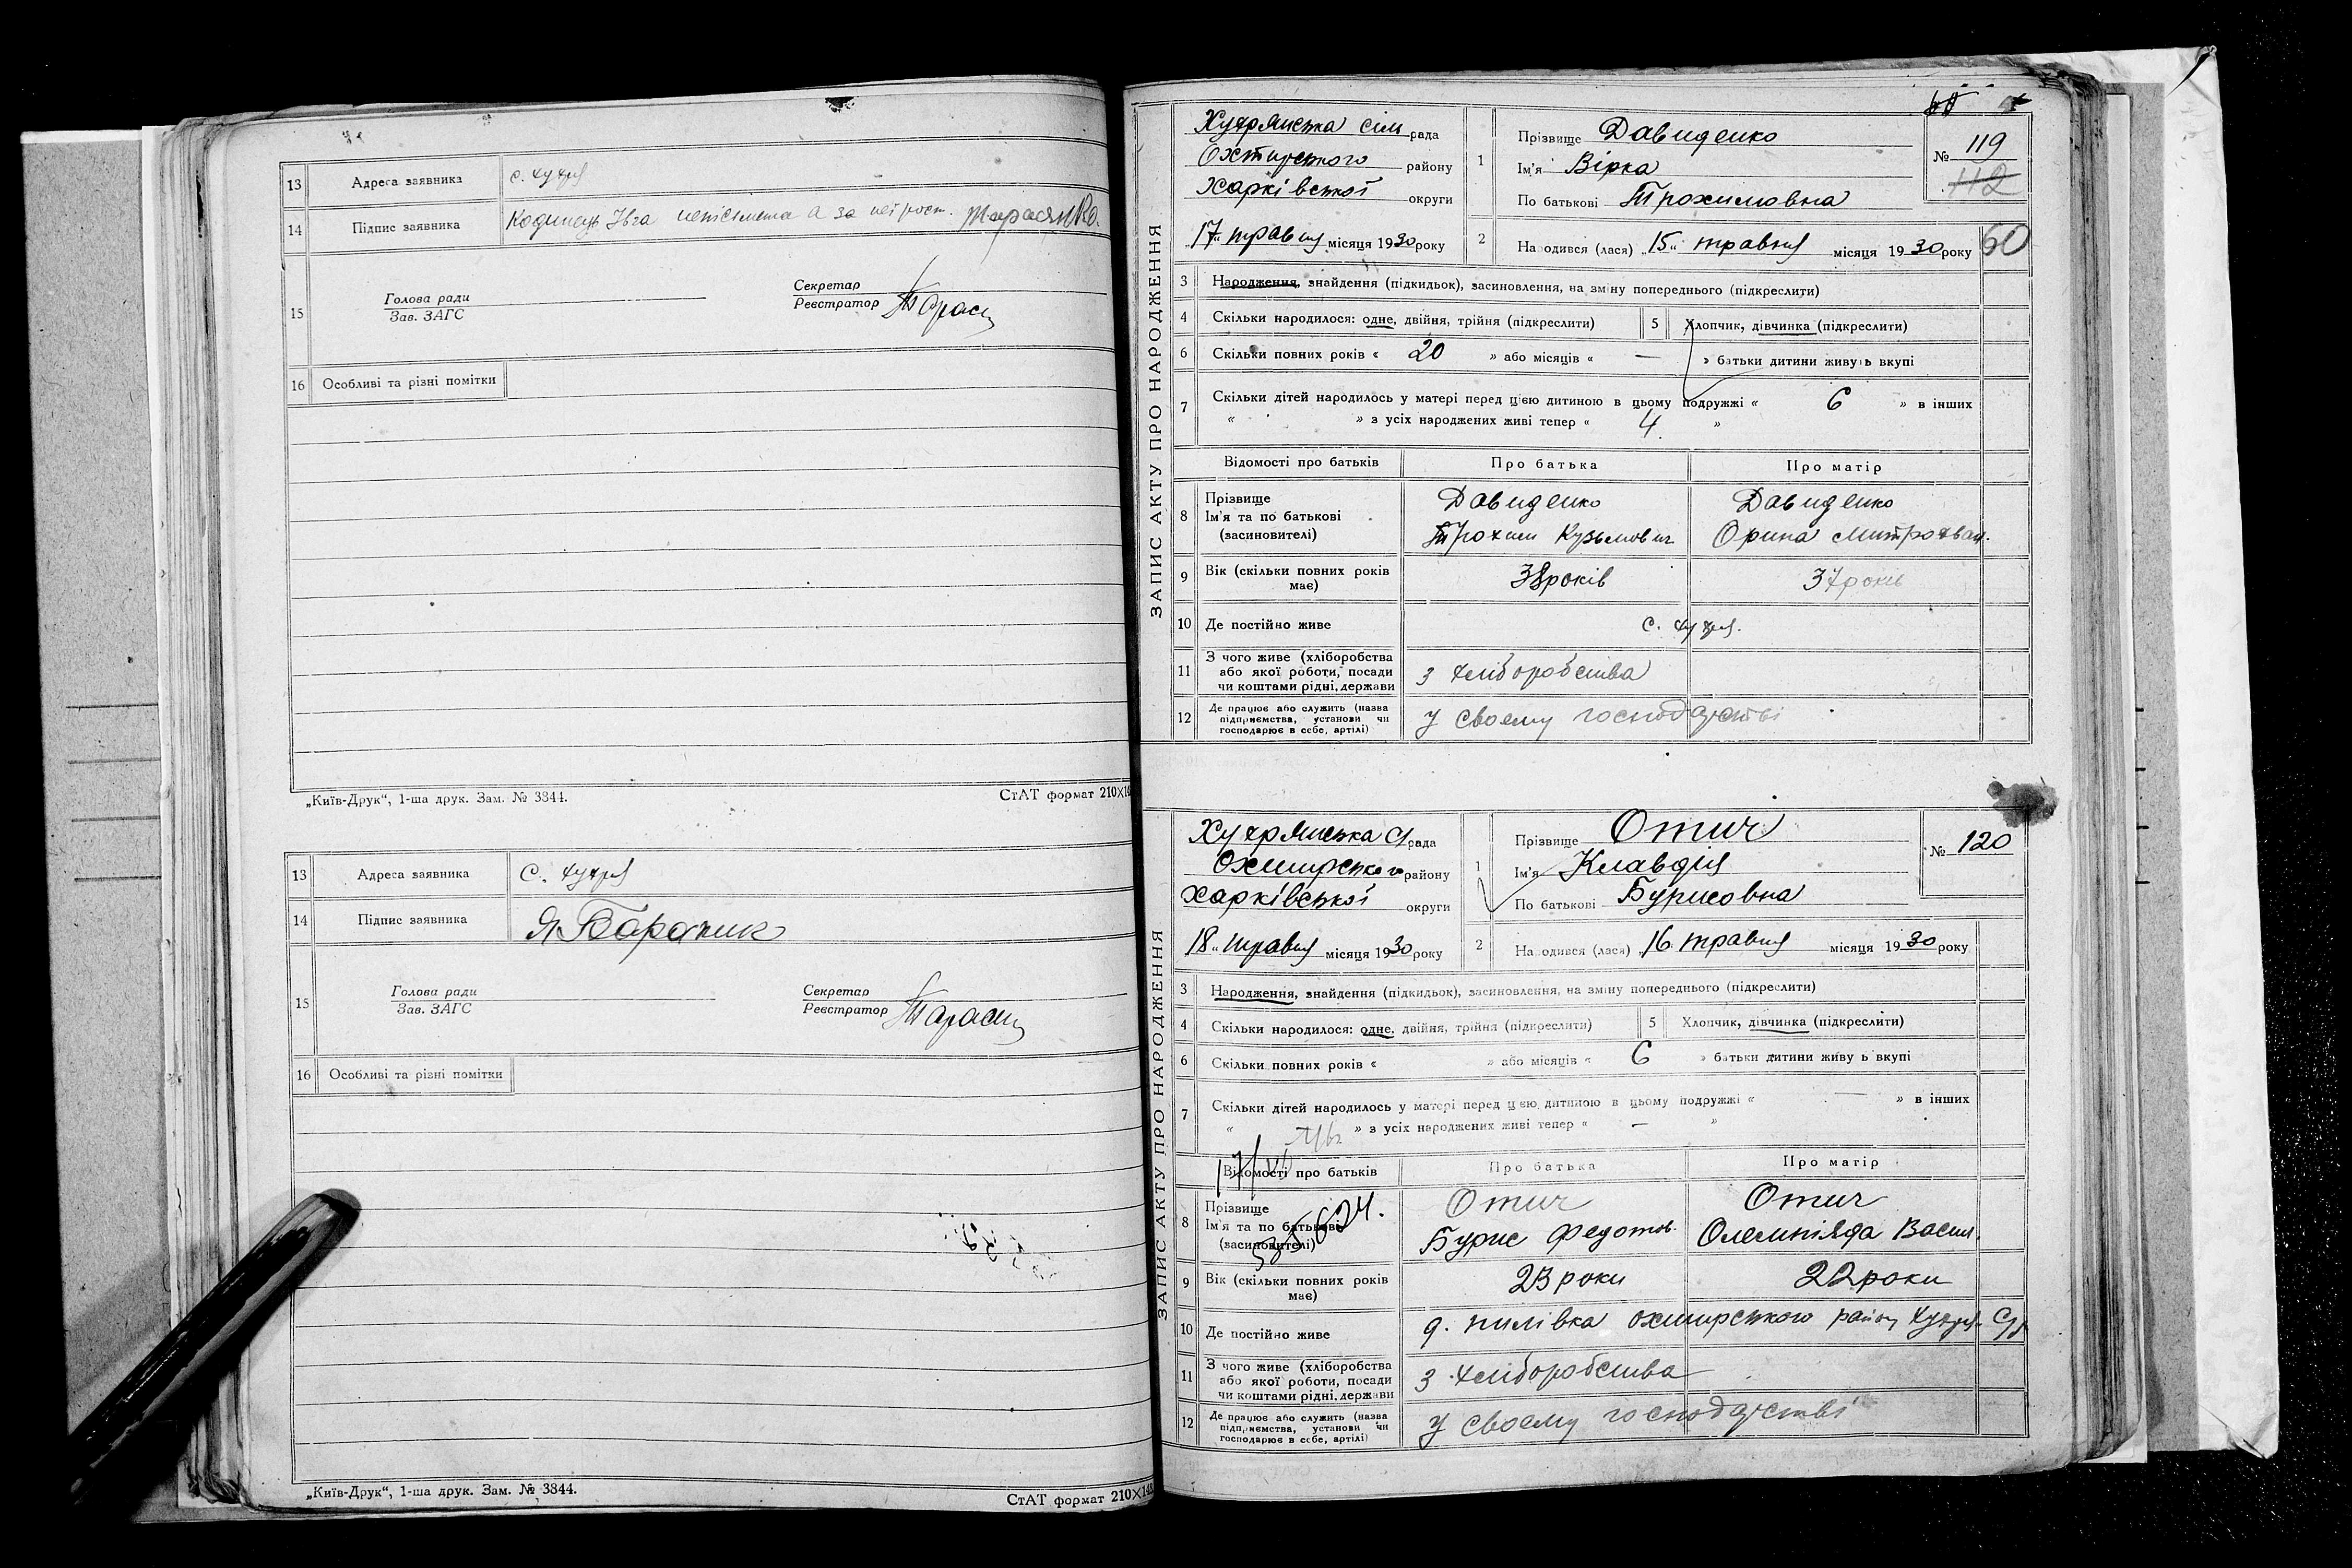 13 Адреса заявника с. Хухря
14 Підпис заявника Кодинець Ївга неписьменна а за неї рост. Тарасенко.
15 Голова ради
Зав. ЗАГС
Секретар
Реєстратор
16 Особливі та різні помітки
„Київ-Друк“, 1-ша друк. Зам. № 3844.
СтАТ формат 210×14
13 Адреса заявника с. Хухря
14 Підпис заявника
15 Голова ради
Зав. ЗАГС
Секретар
Реєстратор
16 Особливі та різні помітки
„Київ-Друк“, 1-ша друк. Зам. № 3844.
СтАТ формат 210×148
ЗАПИС АКТУ ПРО НАРОДЖЕННЯ
Хухрянська сіль рада
Охтирського району
Харківської округи
„17“ травня місяця 1930 року
1 Прізвище Давиденко
Ім'я Вірка
По батькові Трохимовна
№ 119
112
2 Народився (лася) „15“ травня місяця 1930 року
60
3 Народження, знайдення (підкидьок), засиновлення, на зміну попереднього (підкреслити)
4 Скільки народилося: одне, двійня, трійня (підкреслити) 5 Хлопчик, дівчинка (підкреслити)
6 Скільки повних років « 20 » або місяців « — » батьки дитини живуть вкупі
7 Скільки дітей народилось у матері перед цією дитиною в цьому подружжі « 6 » в інших
« » з усіх народжених живі тепер « 4. »
Відомості про батьків Про батька Про матір
8 Прізвище Давиденко Давиденко
Ім'я та по батькові Трохим Кузьмович Орина Митрофан.
(засиновителі)
9 Вік (скільки повних років має) 38 років 37 років
10 Де постійно живе с. Хухря.
11 З чого живе (хліборобства
або якої роботи, посади з хліборобства
чи коштами рідні, держави
12 Де працює або служить (назва
підприємства, установи чи у своему господарстві
господарює в себе, артілі)
ЗАПИС АКТУ ПРО НАРОДЖЕННЯ
Хухрянська с/рада
Охтирського району
Харківської округи
18“ травня місяця 1930 року
1 Прізвище Отич
Ім'я Клавдия
По батькові Бурисовна
№ 120
2 Народився (лася) „16 травня місяця 1930 року
3 Народження, знайдення (підкидьок), засиновлення, на зміну попереднього (підкреслити)
4 Скільки народилося: одне, двійня, трійня (підкреслити) 5 Хлопчик, дівчинка (підкреслити)
6 Скільки повних років « » або місяців « 6 » батьки дитини живуть вкупі
7 Скільки дітей народилось у матері перед цією дитиною в цьому подружжі « — » в інших
« » з усіх народжених живі тепер « — »
Відомості про батьків Про батька Про матір
8 Прізвище Отич Отич
Ім'я та по батькові Бурис Федотов. Олемпіяда Васил.
(засиновителі)
9 Вік (скільки повних років має) 23 роки 22 роки
10 Де постійно живе Пилівка Охтирського району Хухря.
11 З чого живе (хліборобства
або якої роботи, посади з хліборобства
чи коштами рідні, держави
12 Де працює або служить (назва
підприємства, установи чи у своему господарстві
господарює в себе, артілі)